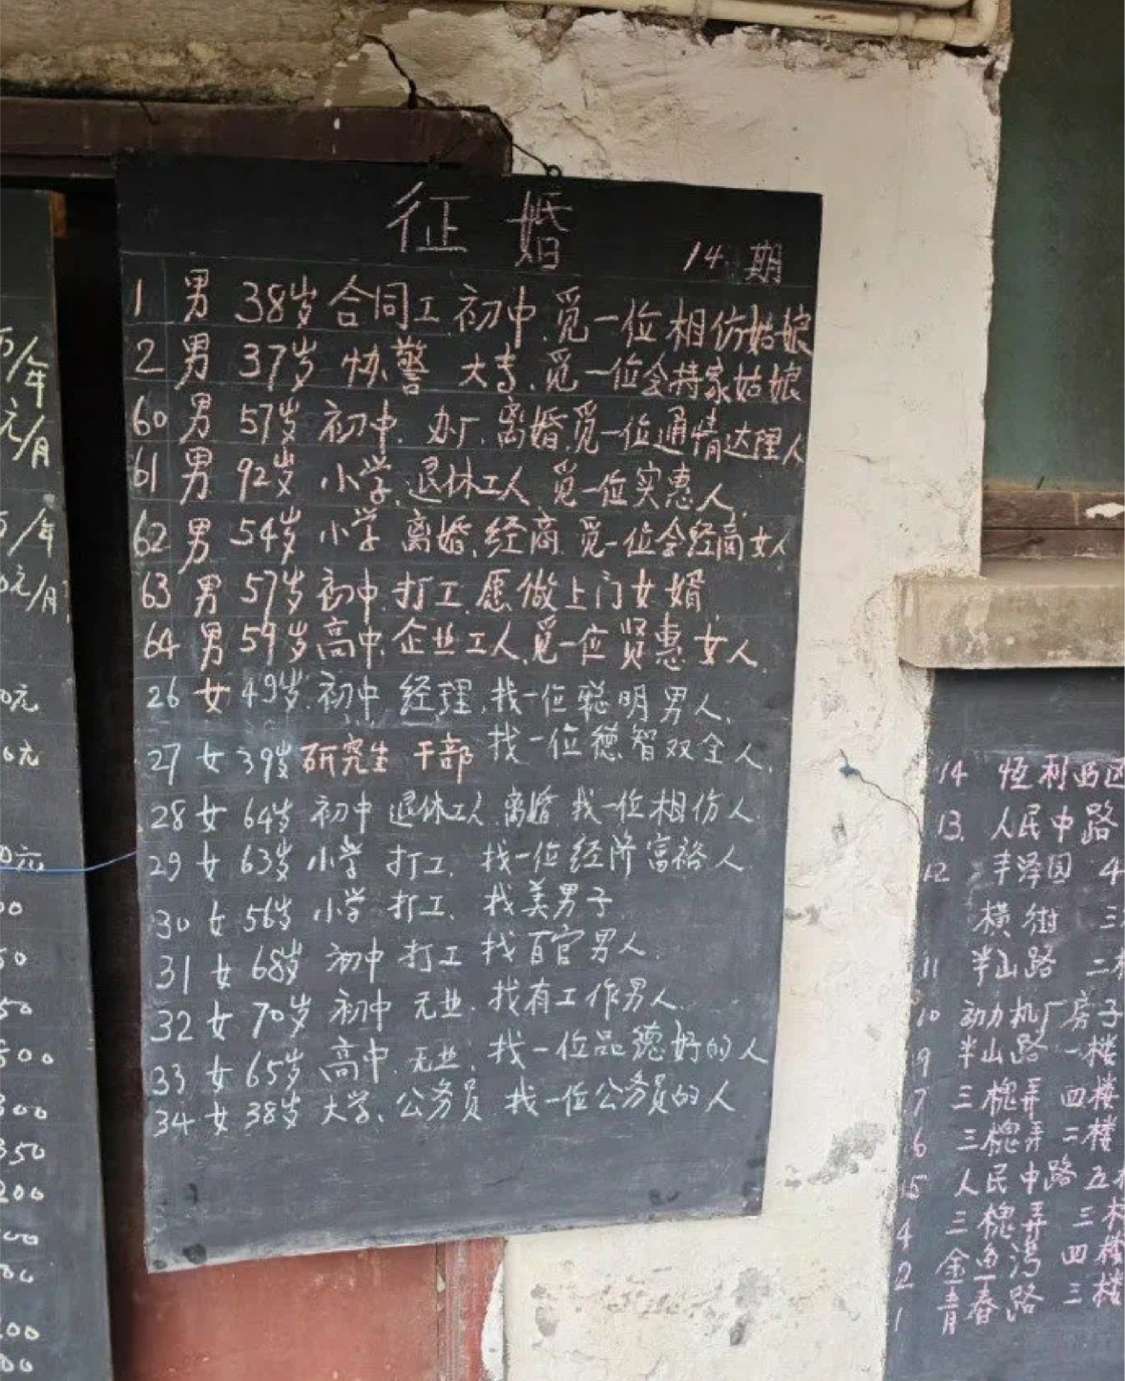 征婚
14期
1 男 38岁 合同工 初中. 觅一位相仿姑娘
2 男 37岁 协警 大专. 觅一位会持家姑娘
60 男 57岁 初中. 办厂. 离婚. 觅一位通情达理人
61 男 92岁 小学. 退休工人 觅一位实惠人.
62 男 54岁 小学 离婚. 经商. 觅一位会经商女人
63 男 57岁 初中. 打工. 愿做上门女婿.
64 男 59岁 高中. 企业工人. 觅一位贤惠女人.
26 女 49岁. 初中 经理. 找一位聪明男人.
27 女 39岁 研究生 干部 找一位德智双全人.
28 女 64岁 初中 退休工人 离婚 找一位相仿人.
29 女 63岁 小学 打工. 找一位经济富裕人
30 女 56岁 小学 打工. 找美男子
31 女 68岁 初中 打工 找百官男人.
32 女 70岁 初中 无业. 找有工作男人.
33 女 65岁 高中. 无业. 找一位品德好的人
34 女 38岁 大学. 公务员 找一位公务员的人
/年
元/月
/年
元/月
0元
0元
0元
00
50
50
500
300
350
200
00
00
00
00
14 恒利西区
13. 人民中路
12 丰泽园 4
横街 三
11 半山路 二
10 动力机厂房子
9 半山路 一楼
7 三槐弄 四楼
6 三槐弄 二楼
15 人民中路 五
4 三槐弄 三
2 金鱼湾 四楼
1 青春路 三楼